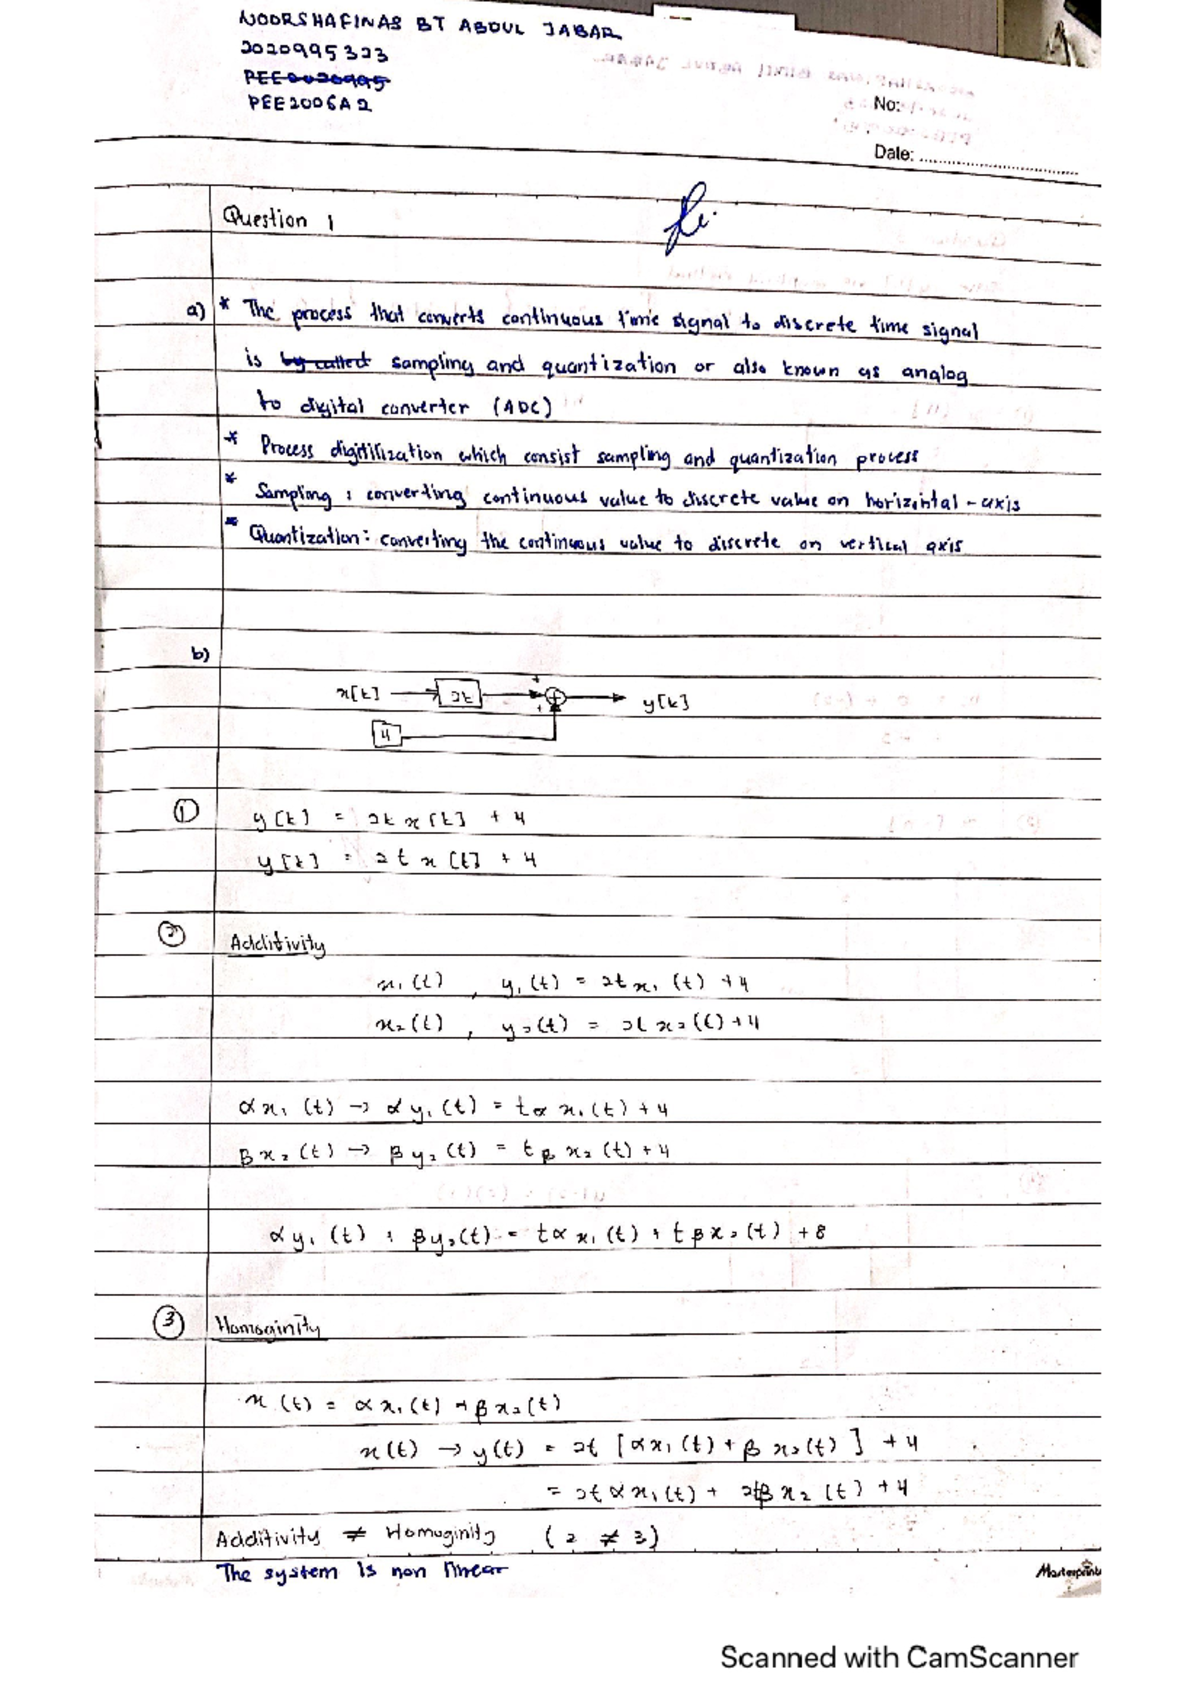 NOORSHAFINAS BT ABDUL JABAR
2020995323
PEE2006A2
No:
Date:
Question 1
a) * The process that converts continuous time signal to discrete time signal
is by called sampling and quantization or also known as analog
to digital converter (ADC)
* Process digitilization which consist sampling and quantization process
* Sampling : converting continuous value to discrete value on horizontal - axis
* Quantization : converting the continuous value to discrete on vertical axis
b)
x[t] 2t + + y[k]
4
① y[k] = 2t x[t] + 4
y[k] = 2t x[t] + 4
② Additivity
x₁(t) , y₁(t) = 2t x₁(t) + 4
x₂(t) , y₂(t) = 2t x₂(t) + 4
αx₁(t) → αy₁(t) = tα x₁(t) + 4
βx₂(t) → βy₂(t) = tβ x₂(t) + 4
αy₁(t) + βy₂(t) = tα x₁(t) + tβ x₂(t) + 8
③ Homoginity
x(t) = αx₁(t) + βx₂(t)
x(t) → y(t) = 2t [αx₁(t) + βx₂(t)] + 4
= 2tαx₁(t) + 2tβx₂(t) + 4
Additivity ≠ Homoginity (2 ≠ 3)
The system is non linear
Masterprint
Scanned with CamScanner